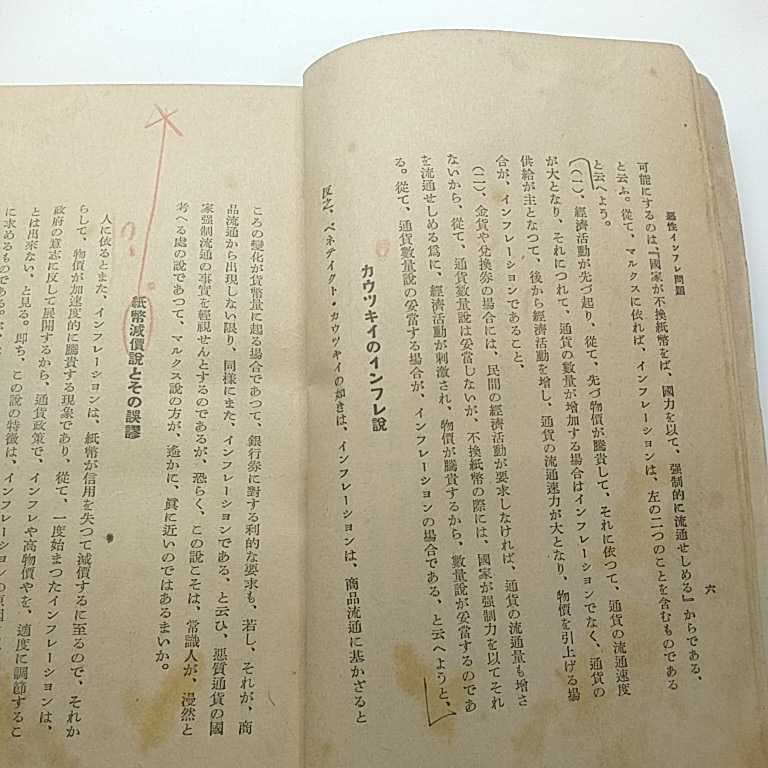 悪性インフレ問題
六
可能にするのは『國家が不換紙幣をば、國力を以て、强制的に流通せしめる』からである、
と云ふ。從て、マルクスに依れば、インフレーションは、左の二つのことを含むものである
と云へよう。
(一)、經濟活動が先づ起り、從て、先づ物價が騰貴して、それに依つて、通貨の流通速度
が大となり、それにつれて、通貨の數量が增加する場合はインフレーションでなく、通貨の
供給が主となつて、後から經濟活動を增し、通貨の流通速力が大となり、物價を引上げる場
合が、インフレーションであること、
(二)、金貨や兌換券の場合には、民間の經濟活動が要求しなければ、通貨の流通量も增さ
ないから、從て、通貨數量說は妥當しないが、不換紙幣の際には、國家が强制力を以てそれ
を流通せしめる爲に、經濟活動が刺激され、物價が騰貴するから、數量說が妥當するのであ
る。從て、通貨數量說の妥當する場合が、インフレーションの場合である、と云へようと、
カウツキイのインフレ說
反之、ベネデイクト・カウツキイの如きは、インフレーションは、商品流通に基かざると
ころの變化が貨幣量に起る場合であつて、銀行券に對する利的な要求も、若し、それが、商
品流通から出現しない限り、同樣にまた、インフレーションである、と云ひ、惡質通貨の國
家强制流通の事實を輕視せんとするのであるが、恐らく、この說こそは、常識人が、漫然と
考へる處の說であつて、マルクス說の方が、遙かに、眞に近いのではあるまいか。
紙幣減價說とその誤謬
人に依るとまた、インフレーションは、紙幣が信用を失つて減價するに至るので、それか
らして、物價が加速度的に騰貴する現象であり、從て、一度始まつたインフレーションは、
政府の意志に反して展開するから、通貨政策で、インフレや高物價やを、適度に調節するこ
とは出來ない、と見る。卽ち、この說の特徵は、インフレーションの原因を
に求めるものである。